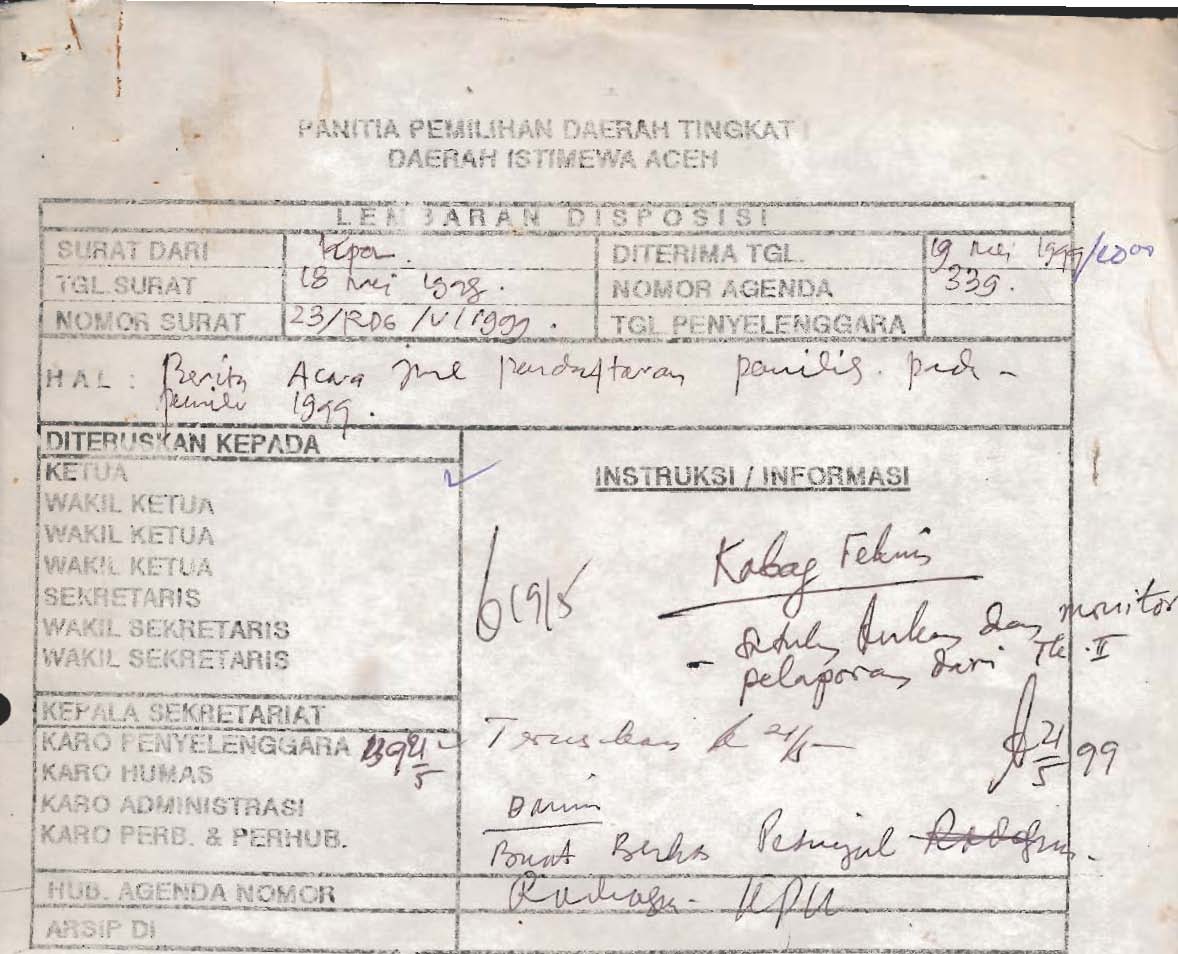 PANITIA PEMILIHAN DAERAH TINGKAT I
DAERAH ISTIMEWA ACEH
LEMBARAN DISPOSISI
SURAT DARI DITERIMA TGL. 19 Mei 1999
TGL.SURAT 18 Mei 1998. NOMOR AGENDA 339.
NOMOR SURAT 23/RDG/V/1999. TGL PENYELENGGARA
HAL : Berita Acara pendaftaran pemilih. pada
pemilu 1999.
DITERUSKAN KEPADA
KETUA
WAKIL KETUA
WAKIL KETUA
WAKIL KETUA
SEKRETARIS
WAKIL SEKRETARIS
WAKIL SEKRETARIS
KEPALA SEKRETARIAT
KARO PENYELENGGARA 21/5
KARO HUMAS
KARO ADMINISTRASI
KARO PERB. & PERHUB.
HUB. AGENDA NOMOR
ARSIP DI
INSTRUKSI / INFORMASI
Kabag Teknis
- dan monitor
pelaporan dari Tk. II
Teruskan 21/5
21/5 99
Buat Berkas
KPU